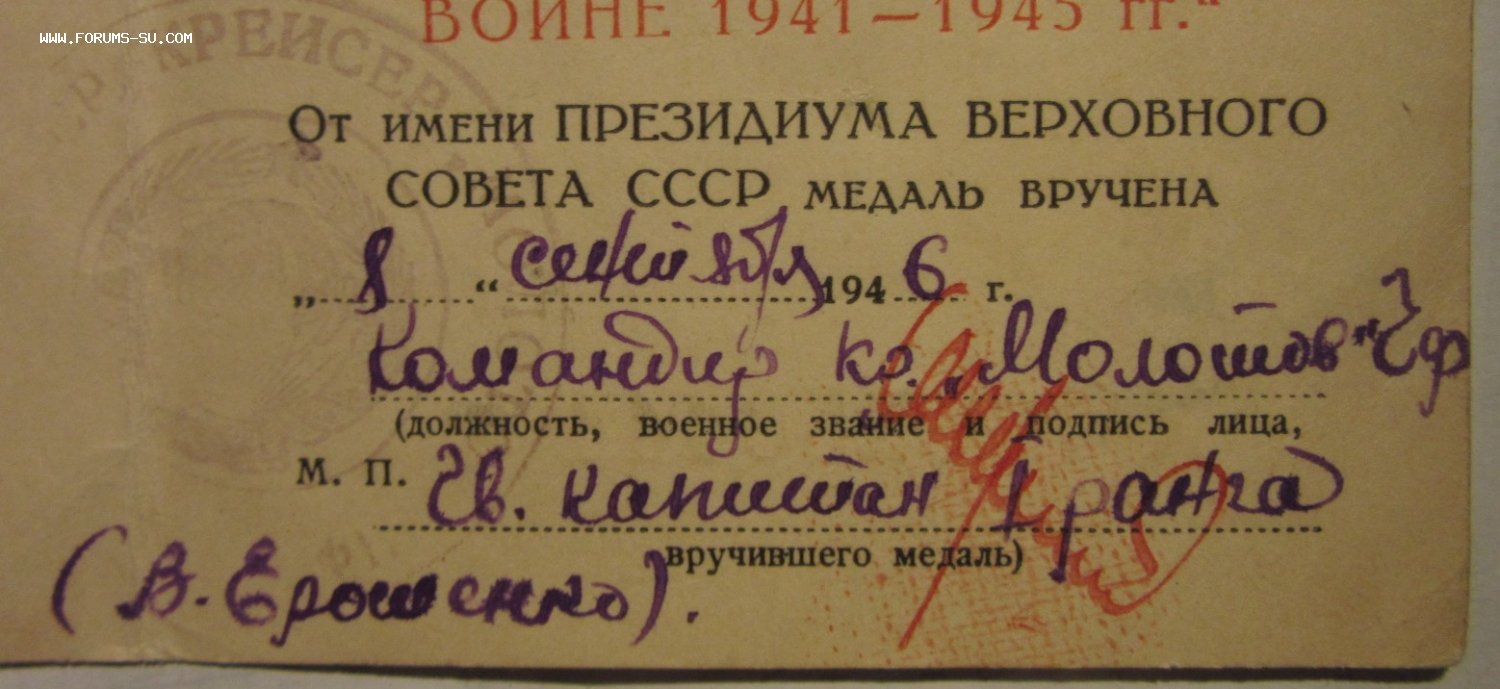 ВОЙНЕ 1941—1945 гг.“
WWW.FORUMS-SU.COM
КРЕЙСЕР МОЛОТОВ
От имени ПРЕЗИДИУМА ВЕРХОВНОГО
СОВЕТА СССР МЕДАЛЬ ВРУЧЕНА
„8“ сентября 1946 г.
Командир кр. „Молотов“ ЧФ
(должность, военное звание и подпись лица,
М. П. Гв. капитан I ранга
вручившего медаль)
(В. Ерошенко).